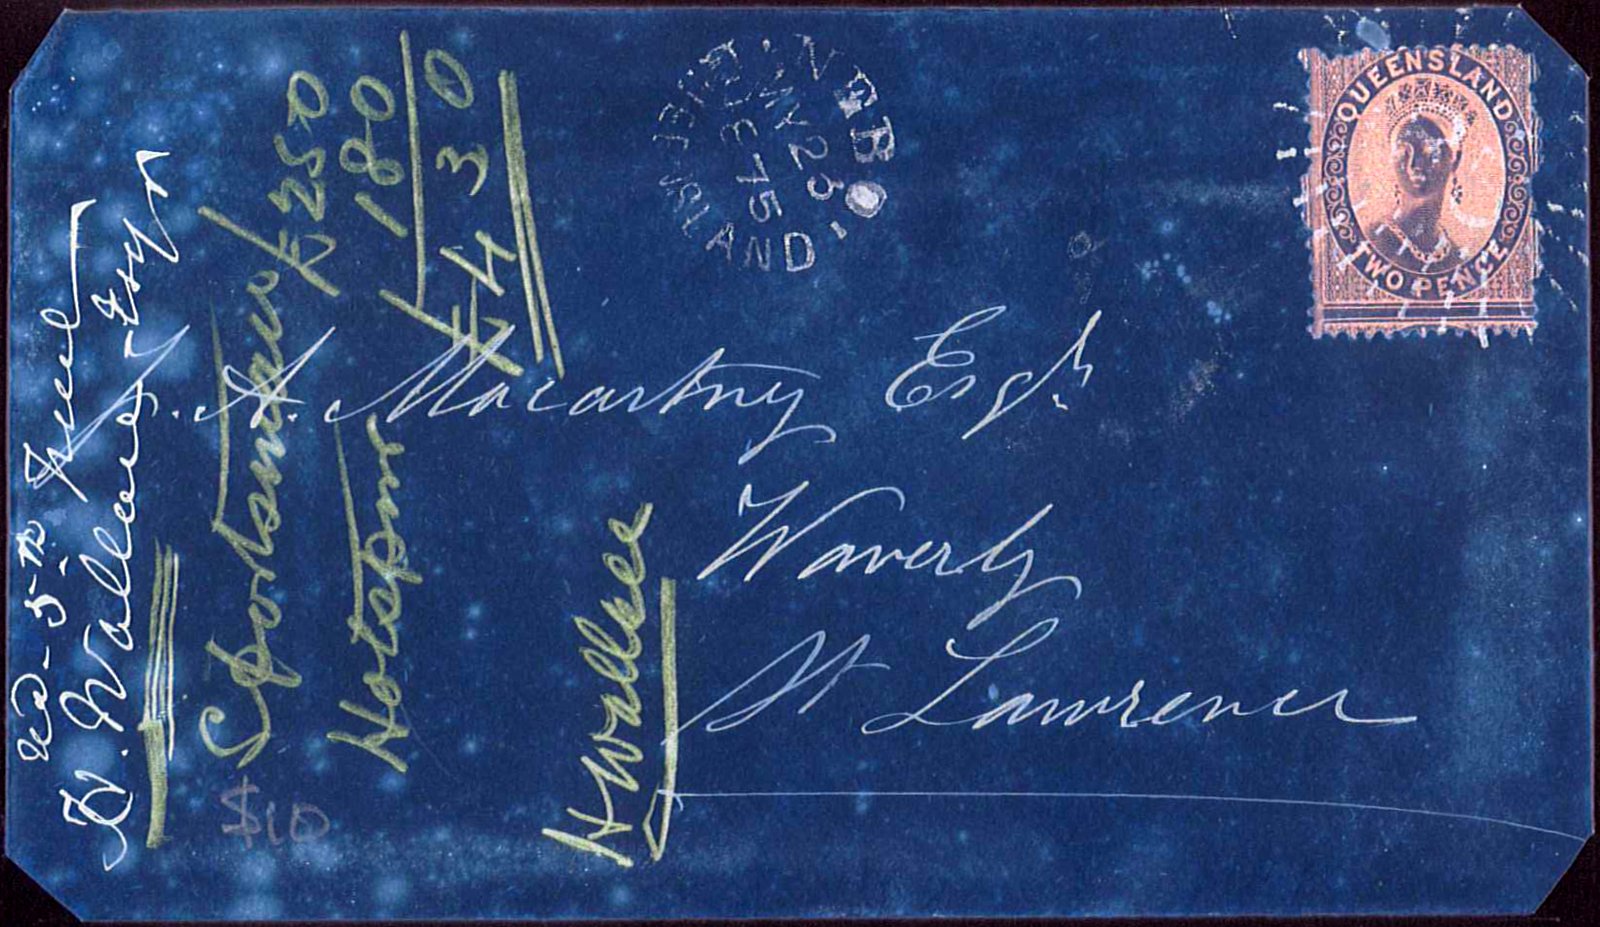 QUEENSLAND
TWO PENCE
NEBO
JY 23
75
QUEENSLAND
J. A. Macartney Esqr
Waverly
St Lawrence
5th
H. Wallace Esqr
Sportsman £250
Hotspur 180
£430
H Wallace
$10